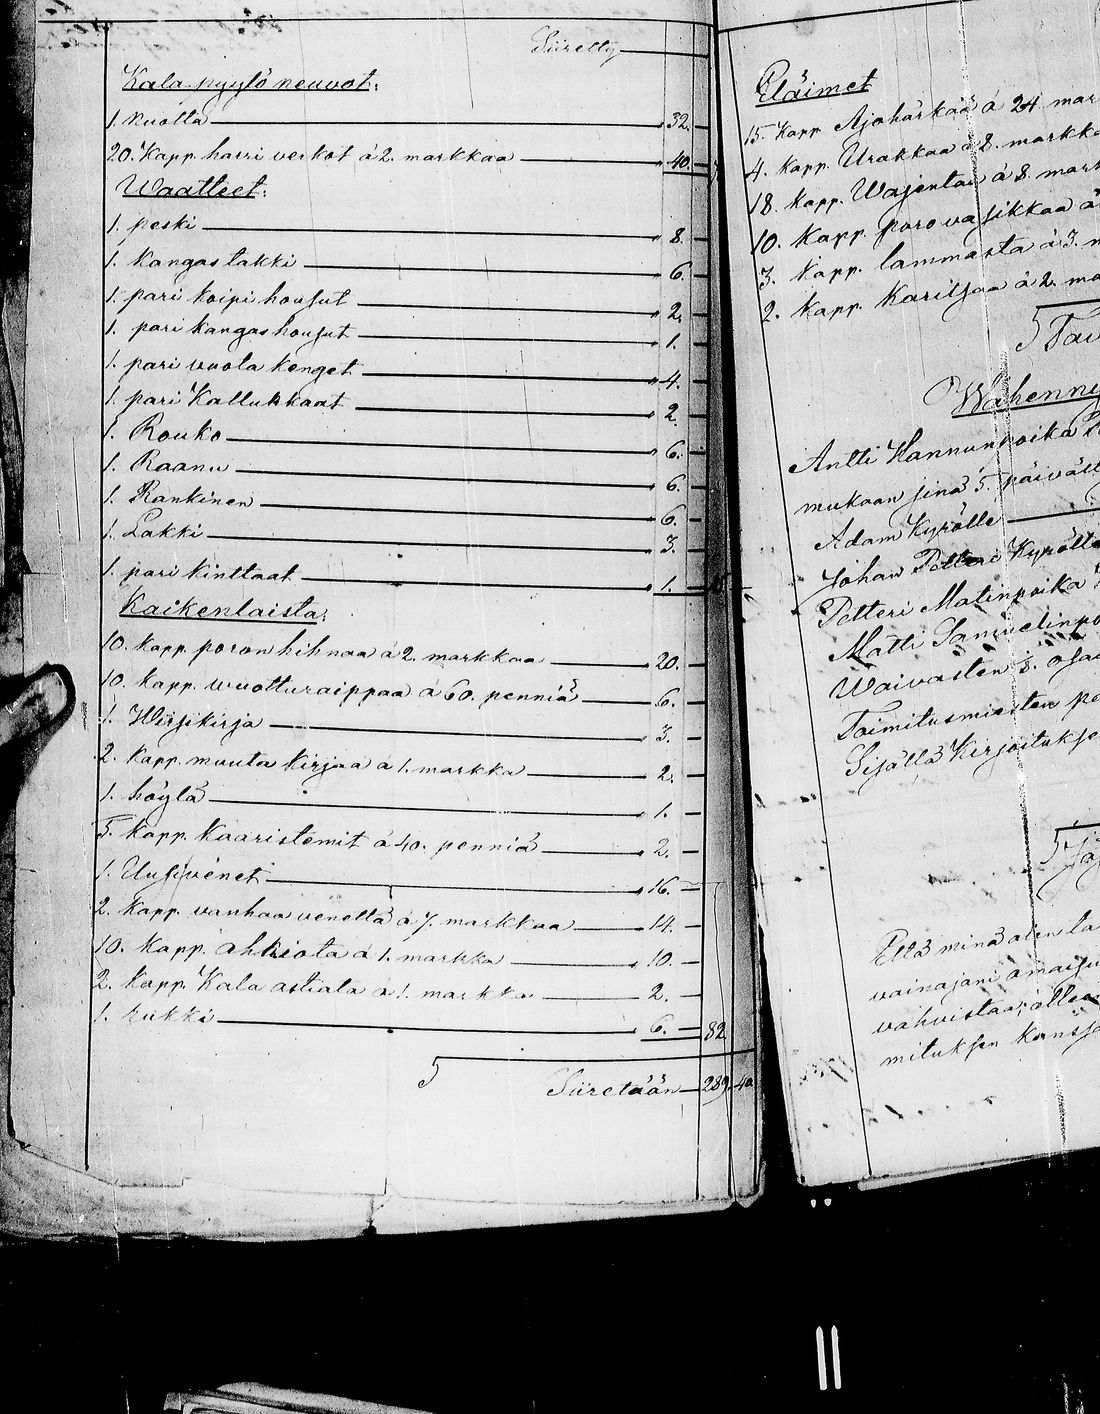 Siiretty
Kala pyytö neuvot:
1. nuotta 32. —
20. Kapp. harri verkot á 2. markkaa 40. —
Waatteet:
1. peski 8. —
1. Kangas takki 6. —
1. pari koipi housut 2. —
1. pari kangas housut 1. —
1. pari vuota kenget 4. —
1. pari Kallukkaat 2. —
1. Rouko 6. —
1. Raanu 6. —
1. Rankinen 6. —
1. Lakki 3. —
1. pari kinttaat 1. —
Kaikenlaista:
10. Kapp. poron hihnaa á 2. markkaa 20. —
10. Kapp. wuotturaippaa á 60. penniä 6. —
1. Wirsikirja 3. —
2. Kapp. muuta kirjaa á 1. markka 2. —
1. höylä 1. —
5. Kapp. Kaaristemit á 40. penniä 2. —
1. Uusi venet 16. —
2. Kapp. vanhaa venettä á 7. markkaa 14. —
10. Kapp. ahkiota á 1. markka 10. —
2. Kapp. Kala astiata á 1. markka 2. —
1. Rukki 6. — 82.
Siiretään 289. 40
Eläimet
15. Kapp. Ajohärkää á 24 mar
4. Kapp. Urakkaa á 8. markka
18. Kapp. Wajentaa á 8. mark
10. Kapp. poro vasikkaa á
3. Kapp. lammasta á 3. m
2. Kapp. Karitsaa á 2. ma
Wähenny
Antti Hannunpoika
mukaan sinä 5. päiväll
Adam Kyrölle
Johan Petteri Kyrölle
Petteri Matinpoika
Matti Samuelinpo
Waivasten 8. osa
Toimitusmiesten pa
Sisällä Kirjoitukse
Että minä olen ta
vainajani omaisu
vahvistaa; allek
mituksen Kanssa